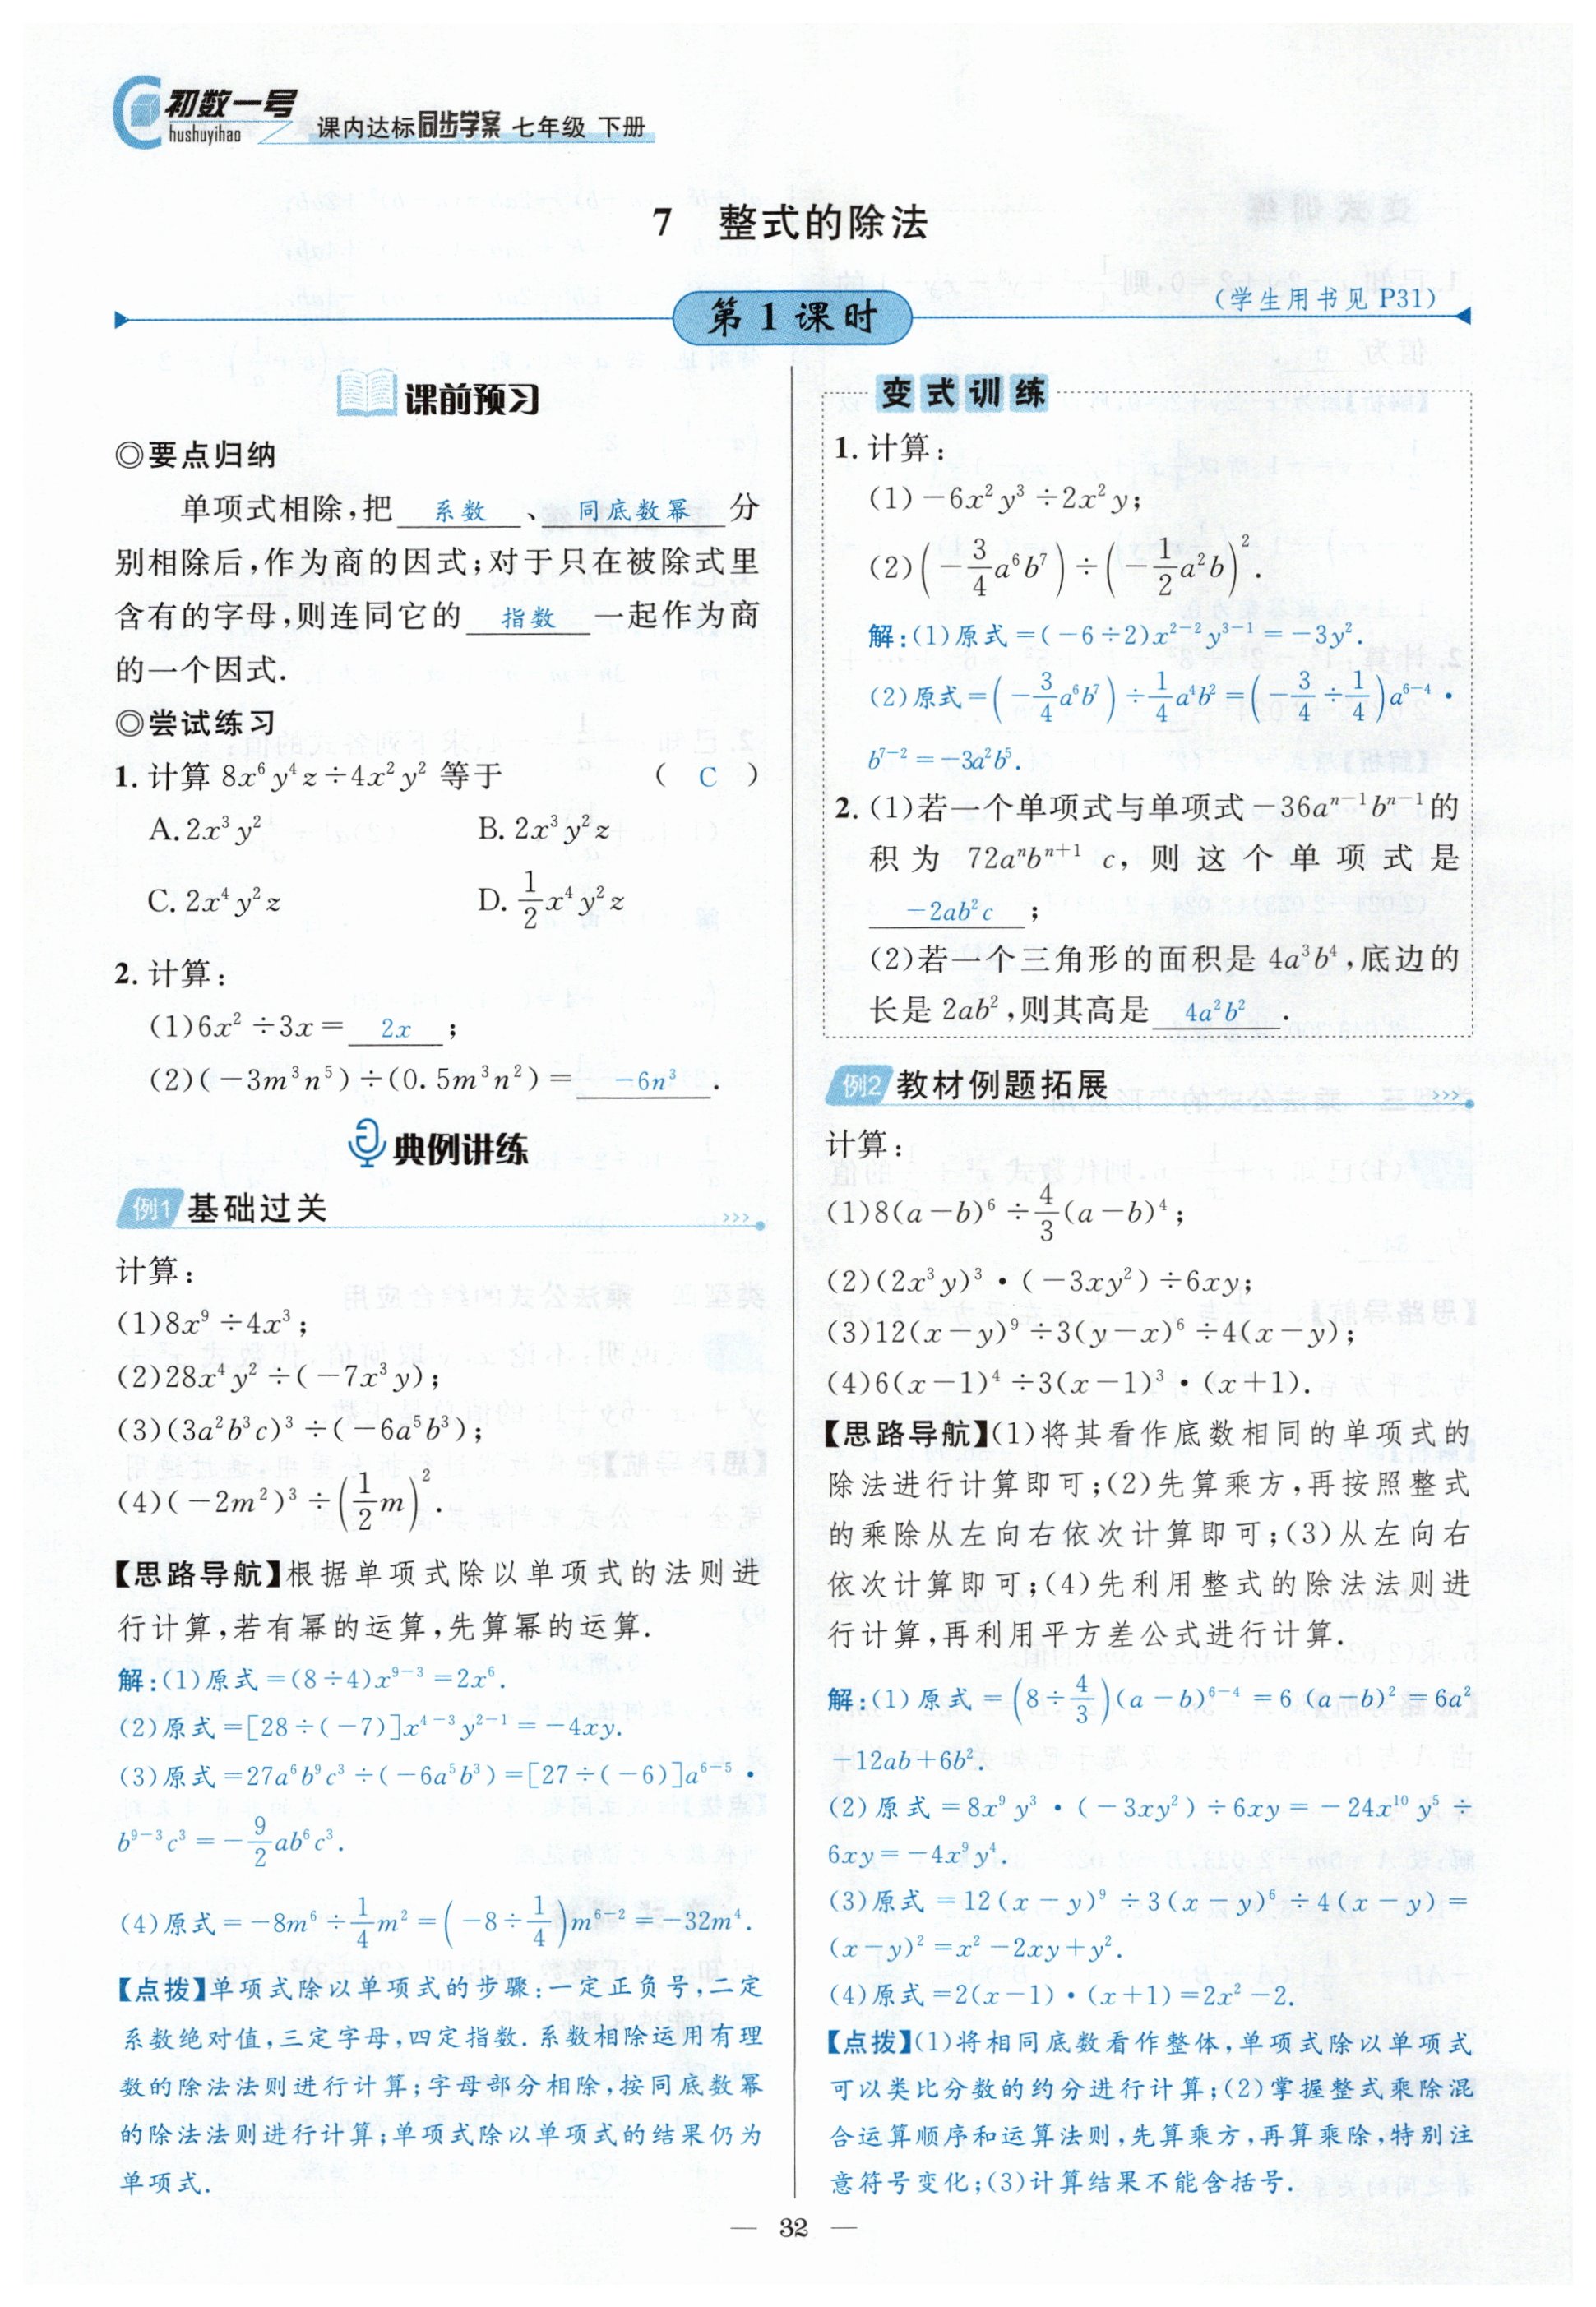 初数一号
hushuyihao
课内达标同步学案 七年级 下册
7 整式的除法
第1课时
(学生用书见 P31)
课前预习
◎要点归纳
单项式相除,把 系数 、 同底数幂 分
别相除后,作为商的因式;对于只在被除式里
含有的字母,则连同它的 指数 一起作为商
的一个因式.
◎尝试练习
1. 计算 8x⁶y⁴z÷4x²y² 等于 ( C )
A. 2x³y² B. 2x³y²z
C. 2x⁴y²z D. 1/2x⁴y²z
2. 计算:
(1)6x²÷3x= 2x ;
(2)(-3m³n⁵)÷(0.5m³n²)= -6n³ .
典例讲练
例1 基础过关
计算:
(1)8x⁹÷4x³;
(2)28x⁴y²÷(-7x³y);
(3)(3a²b³c)³÷(-6a⁵b³);
(4)(-2m²)³÷(1/2m)².
【思路导航】根据单项式除以单项式的法则进
行计算,若有幂的运算,先算幂的运算.
解:(1)原式=(8÷4)x⁹⁻³=2x⁶.
(2)原式=[28÷(-7)]x⁴⁻³y²⁻¹=-4xy.
(3)原式=27a⁶b⁹c³÷(-6a⁵b³)=[27÷(-6)]a⁶⁻⁵·
b⁹⁻³c³=-9/2ab⁶c³.
(4)原式=-8m⁶÷1/4m²=(-8÷1/4)m⁶⁻²=-32m⁴.
【点拨】单项式除以单项式的步骤:一定正负号,二定
系数绝对值,三定字母,四定指数.系数相除运用有理
数的除法法则进行计算;字母部分相除,按同底数幂
的除法法则进行计算;单项式除以单项式的结果仍为
单项式.
变式训练
1. 计算:
(1)-6x²y³÷2x²y;
(2)(-3/4a⁶b⁷)÷(-1/2a²b)².
解:(1)原式=(-6÷2)x²⁻²y³⁻¹=-3y².
(2)原式=(-3/4a⁶b⁷)÷1/4a⁴b²=(-3/4÷1/4)a⁶⁻⁴·
b⁷⁻²=-3a²b⁵.
2. (1)若一个单项式与单项式-36aⁿ⁻¹bⁿ⁻¹的
积为 72aⁿbⁿ⁺¹ c, 则这个单项式是
-2ab²c ;
(2)若一个三角形的面积是 4a³b⁴,底边的
长是 2ab²,则其高是 4a²b² .
例2 教材例题拓展
计算:
(1)8(a-b)⁶÷4/3(a-b)⁴;
(2)(2x³y)³·(-3xy²)÷6xy;
(3)12(x-y)⁹÷3(y-x)⁶÷4(x-y);
(4)6(x-1)⁴÷3(x-1)³·(x+1).
【思路导航】(1)将其看作底数相同的单项式的
除法进行计算即可;(2)先算乘方,再按照整式
的乘除从左向右依次计算即可;(3)从左向右
依次计算即可;(4)先利用整式的除法法则进
行计算,再利用平方差公式进行计算.
解:(1)原式=(8÷4/3)(a-b)⁶⁻⁴=6(a-b)²=6a²
-12ab+6b².
(2)原式=8x⁹y³·(-3xy²)÷6xy=-24x¹⁰y⁵÷
6xy=-4x⁹y⁴.
(3)原式=12(x-y)⁹÷3(x-y)⁶÷4(x-y)=
(x-y)²=x²-2xy+y².
(4)原式=2(x-1)·(x+1)=2x²-2.
【点拨】(1)将相同底数看作整体,单项式除以单项式
可以类比分数的约分进行计算;(2)掌握整式乘除混
合运算顺序和运算法则,先算乘方,再算乘除,特别注
意符号变化;(3)计算结果不能含括号.
— 32 —